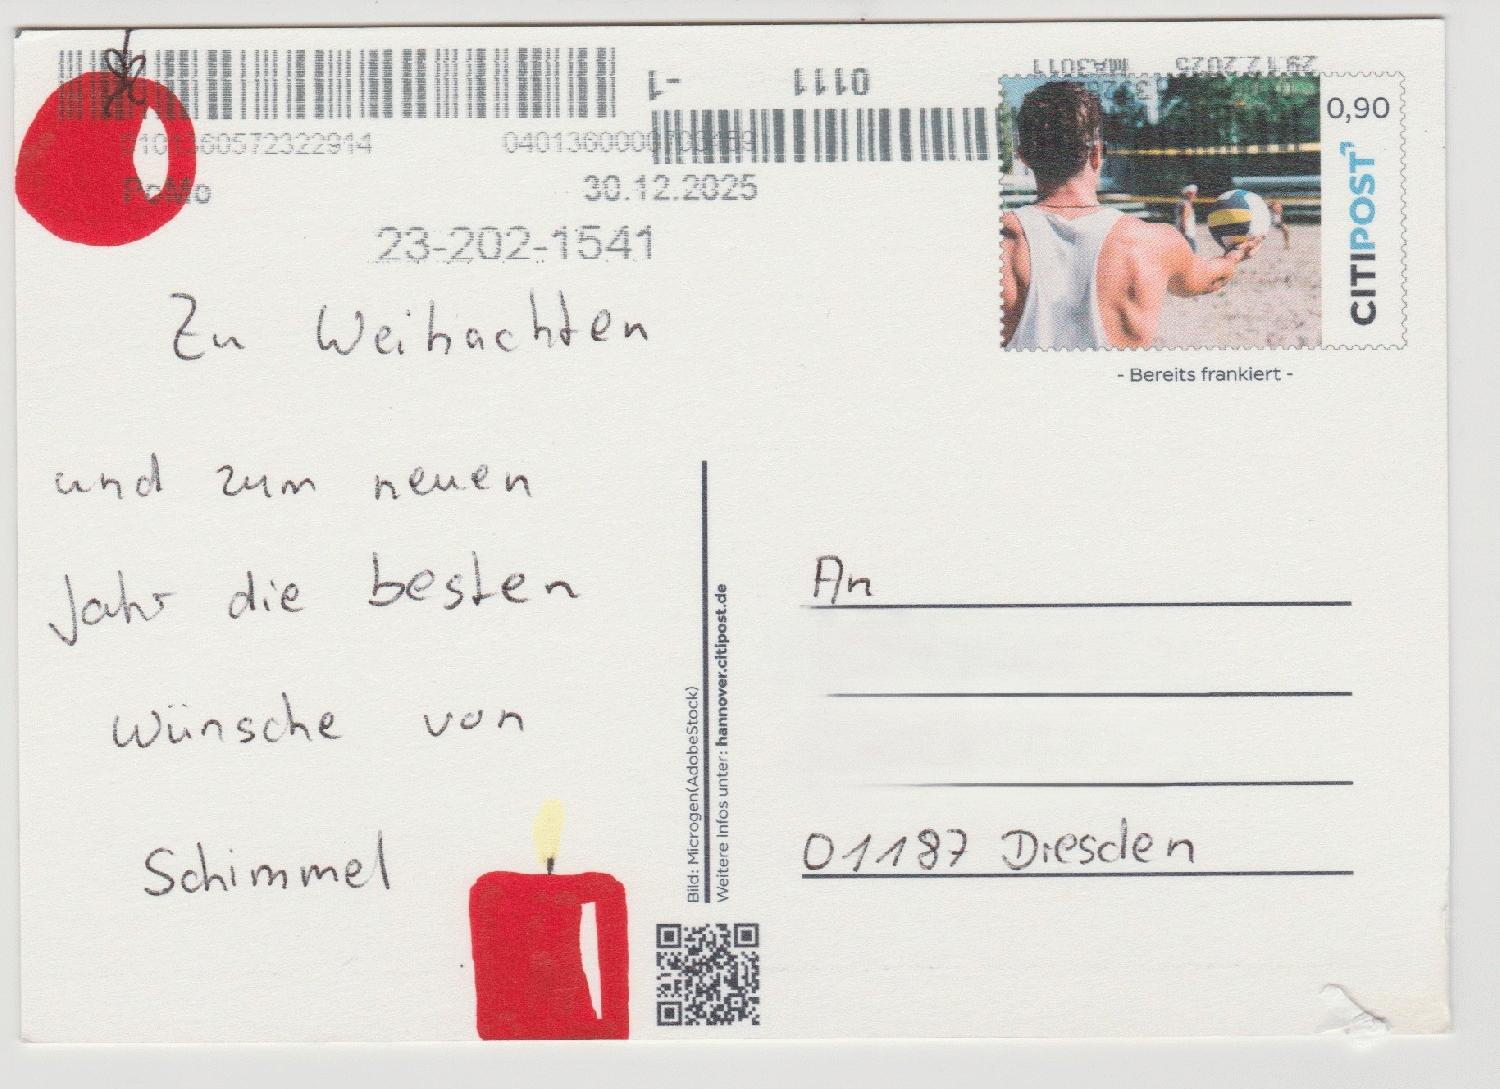 0401360000703459
PoMo
30.12.2025
23-202-1541
-1
0111
29.12.2025
MA3011
0,90
CITIPOST
- Bereits frankiert -
Zu Weihachten
und zum neuen
Jahr die besten
wünsche von
Schimmel
Bild: Microgen(AdobeStock)
Weitere Infos unter: hannover.citipost.de
An
01187 Dresden